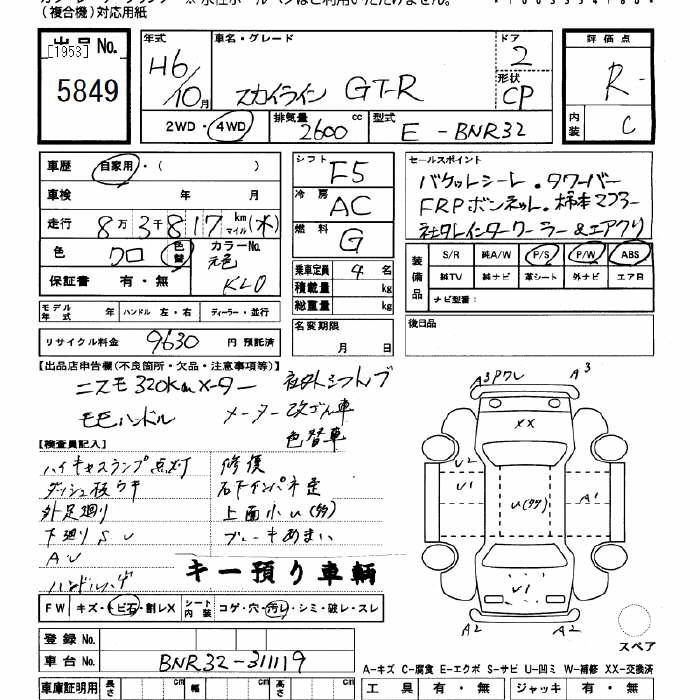 (複合機)対応用紙
出品No.
[1953]
5849
年式 H6/10月
車名・グレード スカイライン GT-R
ドア 2
形状 CP
評価点 R
内装 C
2WD・4WD
排気量 2600 cc
型式 E-BNR32
車歴 自家用・( )
車検 年 月
走行 8万3千817 km マイル (水)
色 クロ 色替 カラーNo. 元色 KL0
保証書 有・無
シフト F5
冷房 AC
燃料 G
乗車定員 4名
積載量 kg
総重量 kg
セールスポイント
バケットシート・タワーバー
FRPボンネット・柿本マフラー
社外インタークーラー&エアクリ
装備品 S/R 純A/W P/S P/W ABS
純TV 純ナビ 革シート 外ナビ エアB
ナビ型番:
モデル年式 年 ハンドル 左・右 ディーラー・並行
名変期限 月 日
後日品
リサイクル料金 9630 円 預託済
【出品店申告欄(不良箇所・欠品・注意事項等)】
ニスモ320kmメーター 社外シフトノブ
モモハンドル メーター改ざん車
色替車
【検査員記入】
ハイキャスランプ点灯 修復
ダッシュ板ウキ 右下インパネ歪
外足廻り 上面小U(多)
下廻りSU ブレーキあまい
AU
キー預り車輌
FW キズ・トビ石・割レX シート内装 コゲ・穴・汚レ・シミ・破レ・スレ
登録No.
車台No. BNR32-311119
車庫証明用 長さ cm 幅 cm 高さ cm
A3 ワレ A3
XX
U2
U1
U(多)
A1
U1
A2 A2
スペア
A-キズ C-腐食 E-エクボ S-サビ U-凹ミ W-補修 XX-交換済
工具 有・無 ジャッキ 有・無